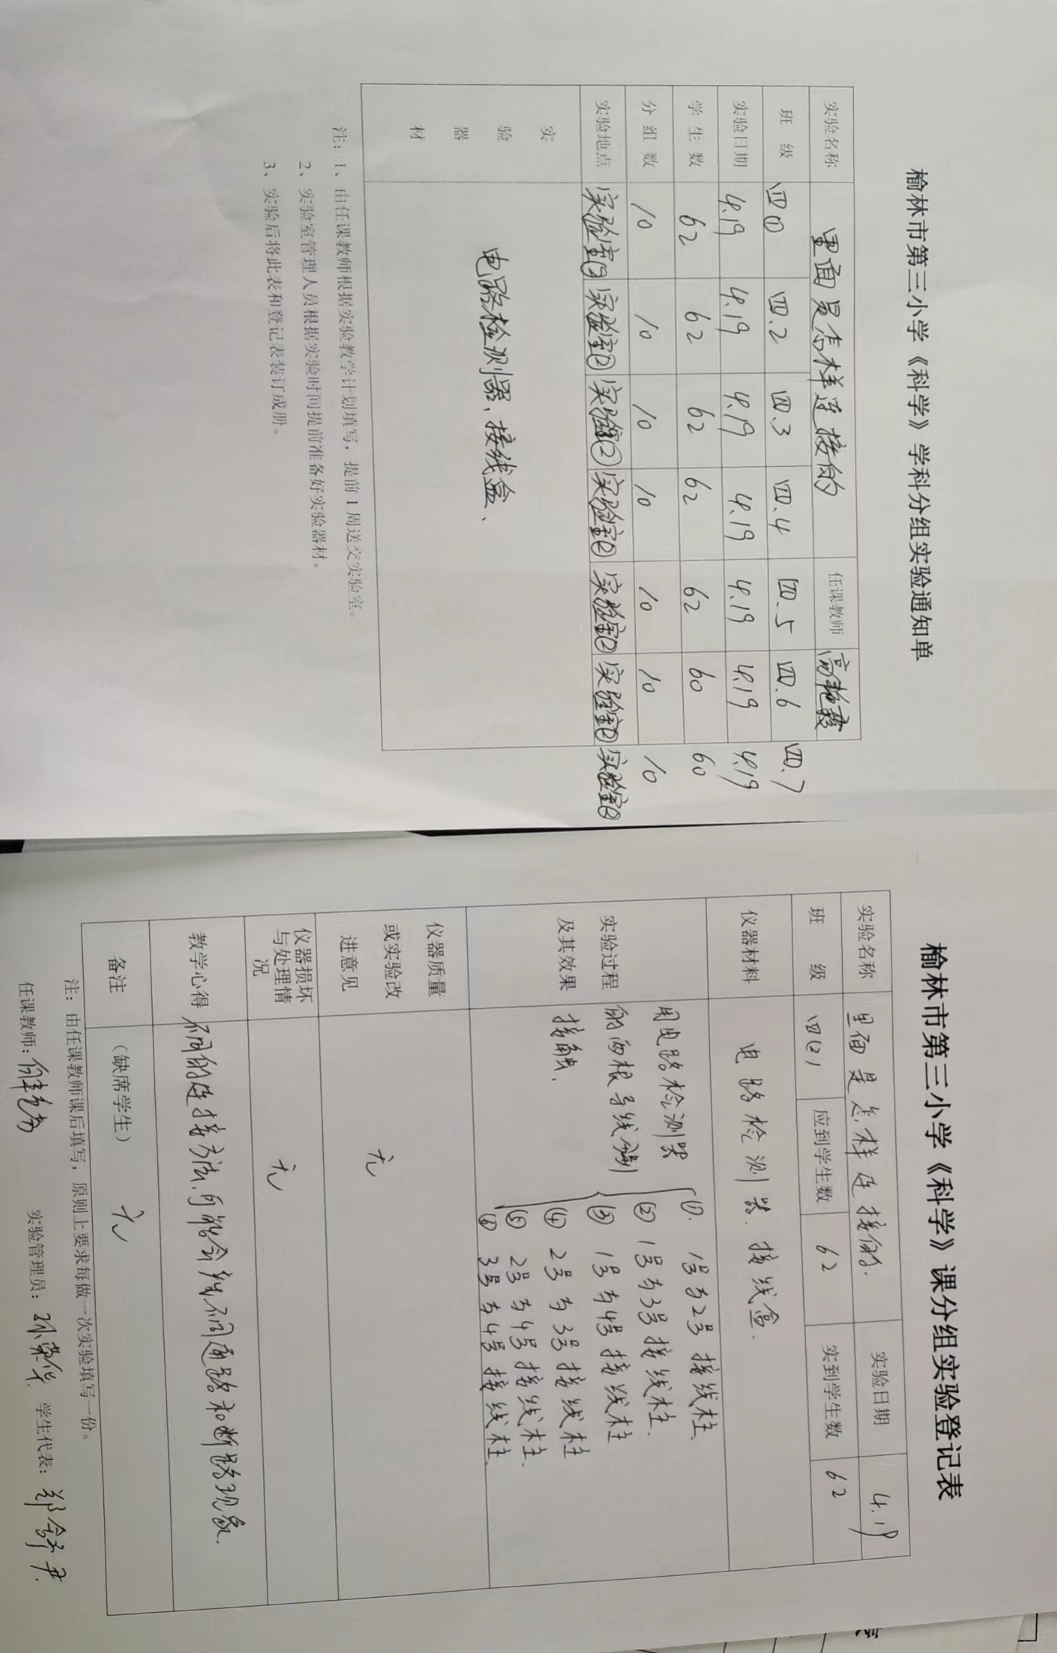 榆林市第三小学《科学》学科分组实验通知单
实验名称 里面是怎样连接的 任课教师
班级 四① 四.2 四.3 四.4 四.5 四.6 四.7
实验日期 4.19 4.19 4.19 4.19 4.19 4.19 4.19
学生数 62 62 62 62 62 60 60
分组数 10 10 10 10 10 10 10
实验地点 实验室② 实验室② 实验室② 实验室② 实验室② 实验室② 实验室②
实验器材 电路检测器、接线盒、
注：1、由任课教师根据实验教学计划填写，提前1周送交实验室。
2、实验室管理人员根据实验时间提前准备好实验器材。
3、实验后将此表和登记表装订成册。
榆林市第三小学《科学》课分组实验登记表
实验名称 里面是怎样连接的. 实验日期 4.19
班级 四(2) 应到学生数 62 实到学生数 62
仪器材料 电路检测器. 接线盒.
实验过程及其效果
用电路检测器
的两根导线分别
接触.
①. 1号与2号接线柱.
② 1号与3号接线柱.
③ 1号与4号接线柱
④ 2号与3号接线柱
⑤ 2号与4号接线柱.
⑥ 3号与4号接线柱.
仪器质量或实验改进意见 无
仪器损坏与处理情况 无
教学心得 不同的连接方法.可能会产生不同通路和断路现象.
备注 （缺席学生） 无
注：由任课教师课后填写，原则上要求每做一次实验填写一份。
任课教师: 实验管理员: 学生代表: